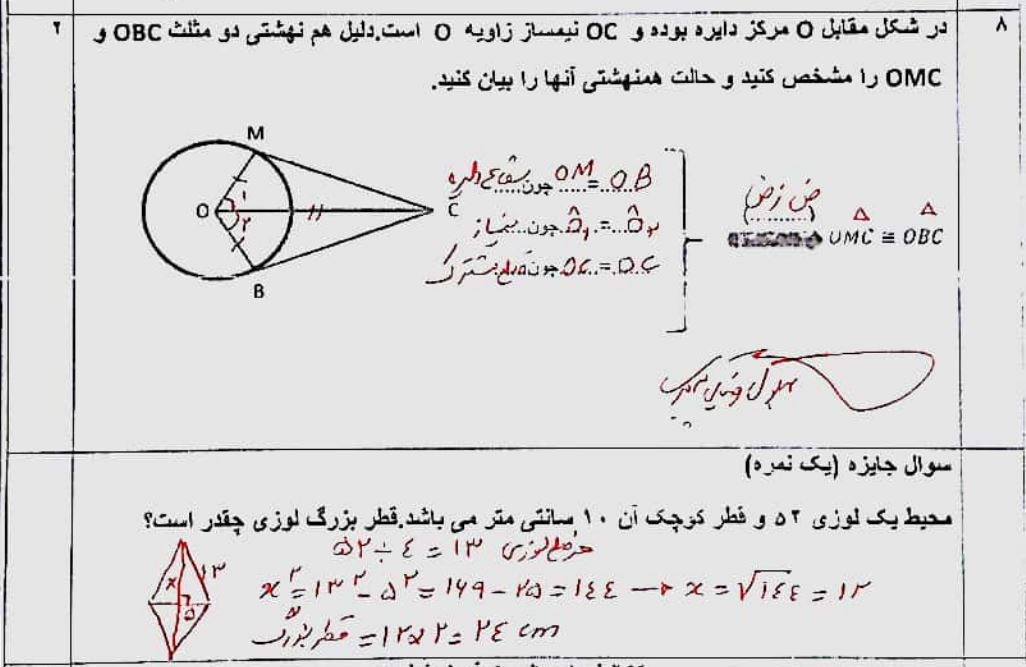 ۸ در شکل مقابل O مرکز دایره بوده و OC نیمساز زاویه O است.دلیل هم نهشتی دو مثلث OBC و ۲
OMC را مشخص کنید و حالت همنهشتی آنها را بیان کنید.
M
O ۱ ۲ C
B
OM = OB چون شعاع دایره
Ô₁ = Ô₂ چون نیمساز
OC = OC چون ضلع مشترک
(ض ز ض)
OMC ≅ OBC
سوال جایزه (یک نمره)
محیط یک لوزی ۵۲ و قطر کوچک آن ۱۰ سانتی متر می باشد.قطر بزرگ لوزی چقدر است؟
۵۲ ÷ ٤ = ۱۳ هر ضلع لوزی
x ۱۳ ۵
x² = ۱۳² - ۵² = ۱۶۹ - ۲۵ = ۱٤٤ → x = √۱٤٤ = ۱۲
قطر بزرگ = ۱۲ × ۲ = ۲٤ cm